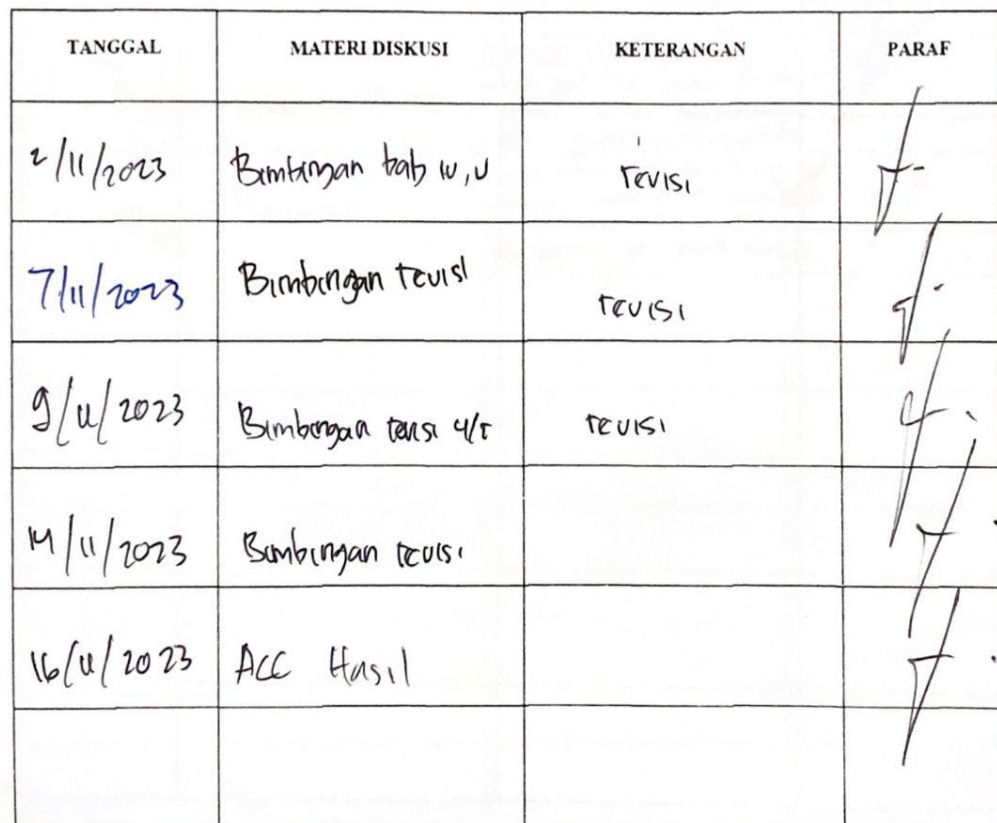 TANGGAL MATERI DISKUSI KETERANGAN PARAF
2/11/2023 Bimbingan bab IV, V revisi
7/11/2023 Bimbingan revisi revisi
9/11/2023 Bimbingan revisi 4/5 revisi
14/11/2023 Bimbingan revisi
16/11/2023 ACC Hasil